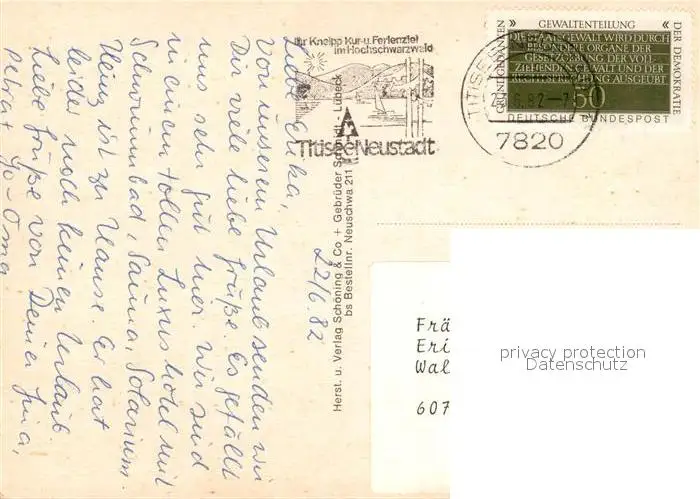 Liebe Erika,
von unserem Urlaub senden wir
Dir viele liebe Grüße. Es gefällt
uns sehr gut hier. Wir sind
in einem tollen Luxushotel mit
Schwimmbad, Sauna, Solarium.
Heinz ist zu Hause. Er hat
leider noch keinen Urlaub
Liebe Grüße von Deiner
Petra + Jo - Oma
22/6.82
Herst. u. Verlag Schöning & Co + Gebrüder Schmidt - Lübeck
bs Bestellnr. Neuschwa 211
Ihr Kneipp Kur- u. Ferienziel
im Hochschwarzwald
Titisee Neustadt
TITISEE
.6.82-7
7820
» GEWALTENTEILUNG «
GRUNDGEDANKEN
DER DEMOKRATIE
DIE STAATSGEWALT WIRD DURCH
BESONDERE ORGANE DER
GESETZGEBUNG DER VOLL
ZIEHENDEN GEWALT UND DER
RECHTSPRECHUNG AUSGEÜBT
50
DEUTSCHE BUNDESPOST
Frä
Eri
Wal
607
privacy protection
Datenschutz